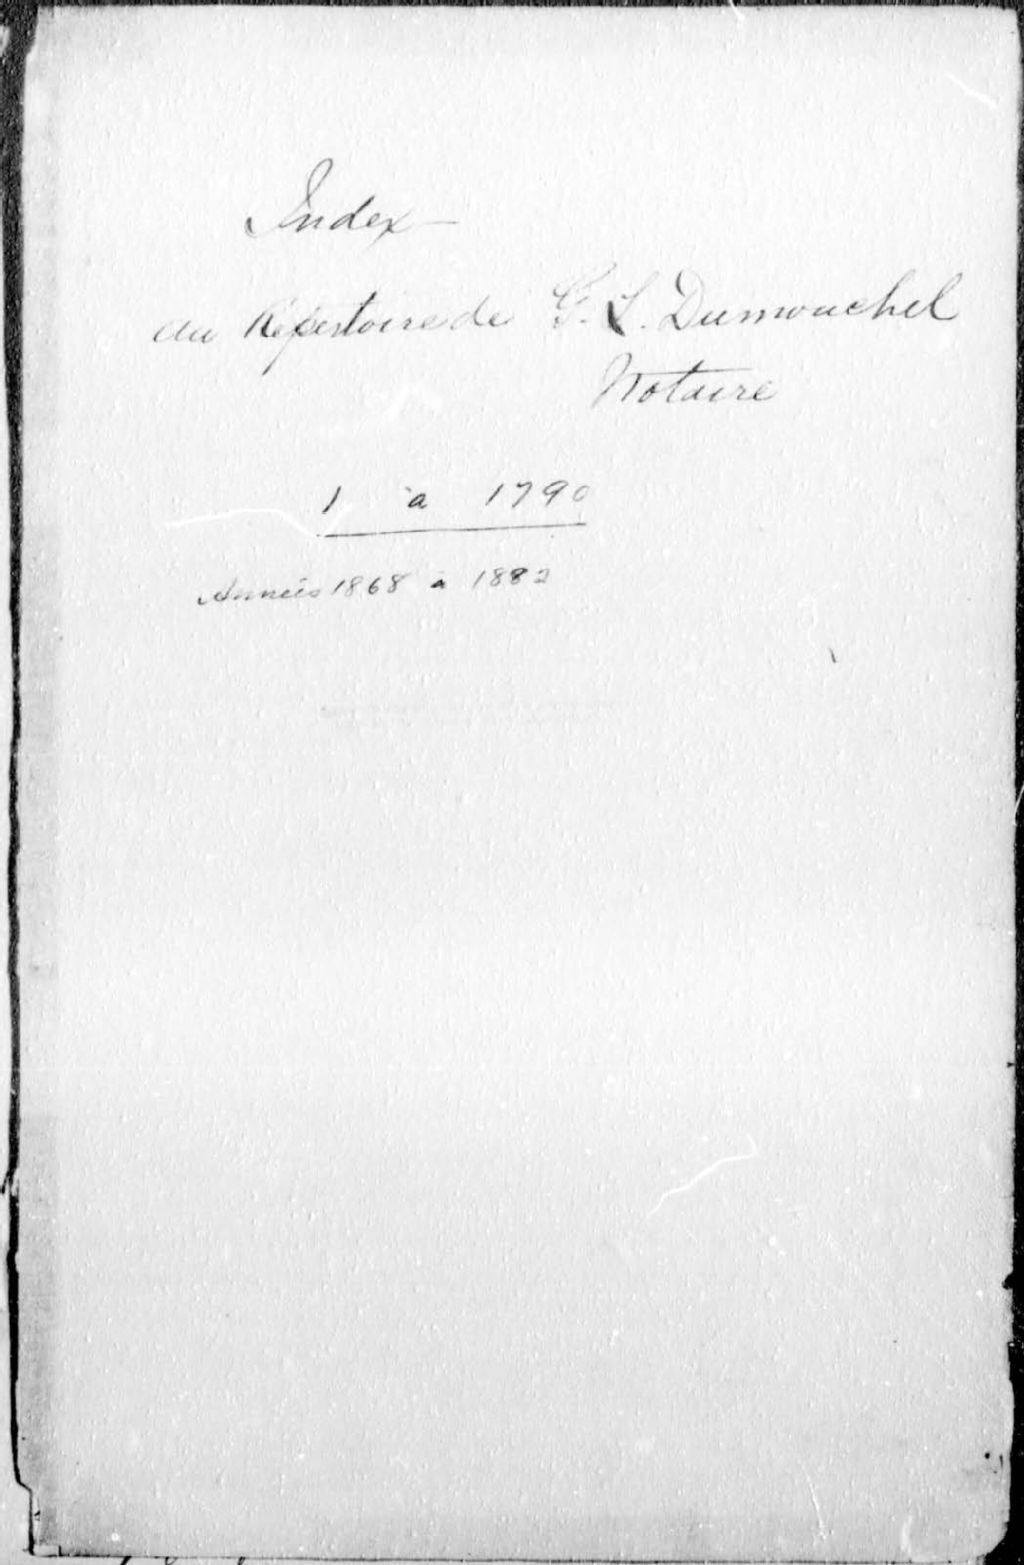 Index —
au Répertoire de G. L. Dumouchel
Notaire
1 à 1790
Années 1868 à 1882